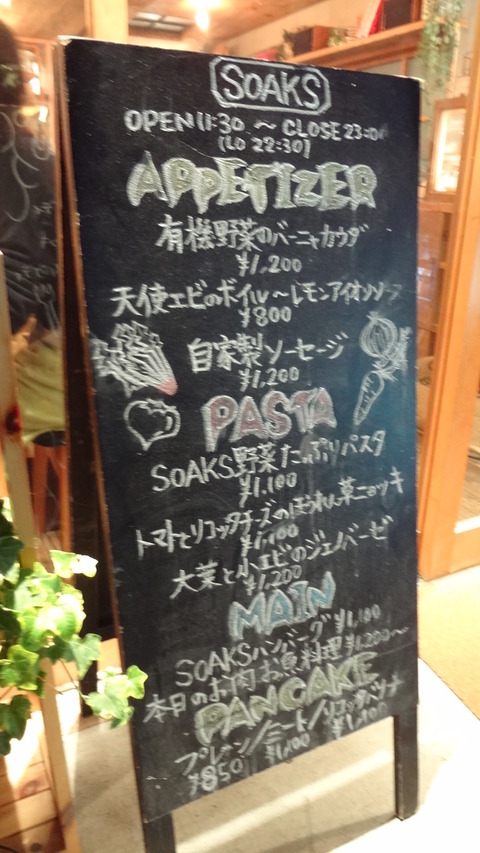 SOAKS
OPEN 11:30 ～ CLOSE 23:00
(LO 22:30)
APPETIZER
有機野菜のバーニャカウダ
¥1,200
天使エビのボイル～レモンアイオリソース
¥800
自家製ソーセージ
¥1,200
PASTA
SOAKS野菜たっぷりパスタ
¥1,100
トマトとリコッタチーズのほうれん草ニョッキ
¥1,100
大葉と小エビのジェノベーゼ
¥1,200
MAIN
SOAKSハンバーグ ¥1,100
本日のお肉お魚料理 ¥1,200～
PANCAKE
プレーン/ミート/リコッタバナナ
¥850 ¥1,100 ¥1,100